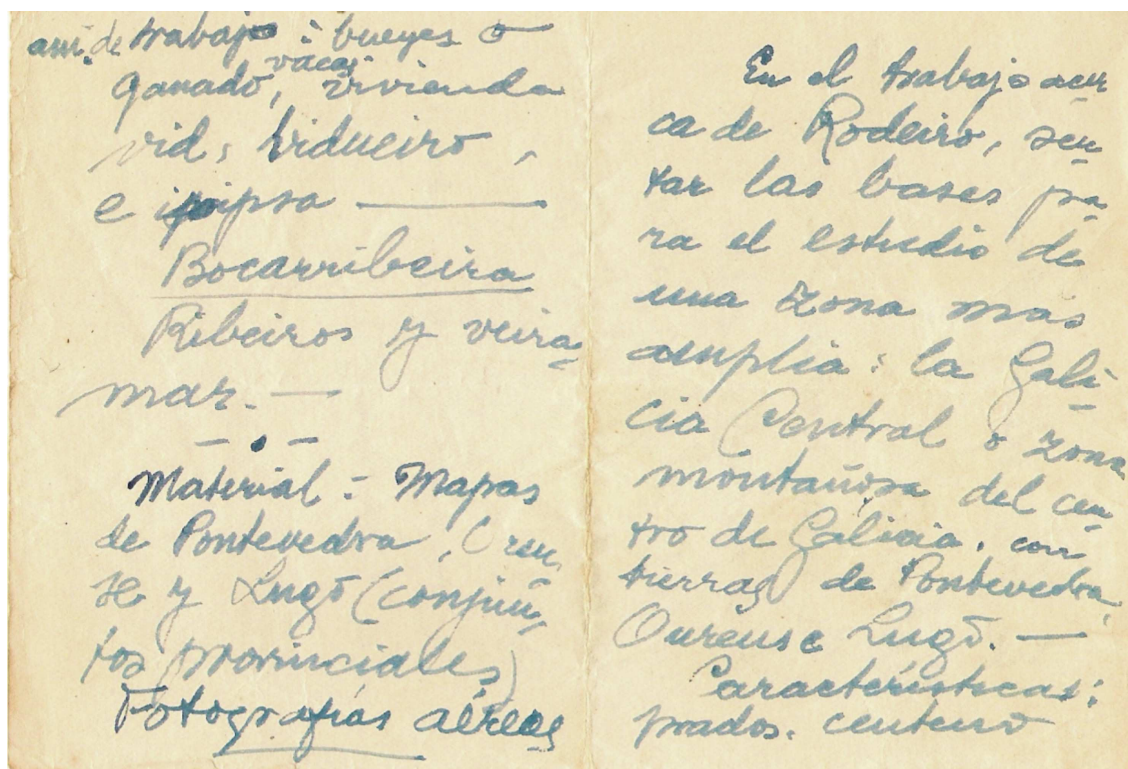 ani. de trabajo : bueyes o
vacas
ganado, vivienda
vid, bidueiro,
e
Bocarribeira
Ribeiros y veira-
mar. —
— . —
Material : Mapas
de Pontevedra, Oren-
se y Lugo (conjun-
tos provinciales)
Fotografías aéreas
En el trabajo acer
ca de Rodeiro, sen-
tar las bases pa-
ra el estudio de
una zona mas
amplia : la Gali-
cia Central o zona
montañosa del cen-
tro de Galicia, con
tierras de Pontevedra,
Ourense e Lugo. —
Características:
prados. centeno